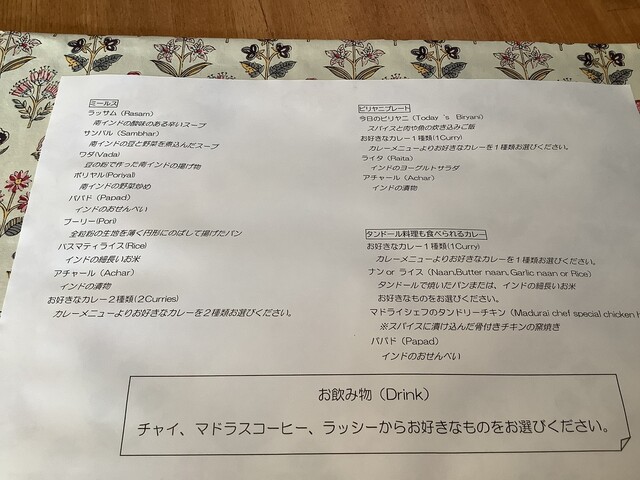 ミールス
ラッサム (Rasam)
南インドの酸味のある辛いスープ
サンバル (Sambhar)
南インドの豆と野菜を煮込んだスープ
ワダ(Vada)
豆の粉で作った南インドの揚げ物
ポリヤル(Poriyal)
南インドの野菜炒め
パパド (Papad)
インドのおせんべい
プーリー(Pori)
全粒粉の生地を薄く円形にのばして揚げたパン
バスマティライス(Rice)
インドの細長いお米
アチャール (Achar)
インドの漬物
お好きなカレー２種類(2Curries)
カレーメニューよりお好きなカレーを２種類お選びください。
ビリヤニプレート
今日のビリヤニ (Today's Biryani)
スパイスと肉や魚の炊き込みご飯
お好きなカレー１種類(1Curry)
カレーメニューよりお好きなカレーを１種類お選びください。
ライタ (Raita)
インドのヨーグルトサラダ
アチャール (Achar)
インドの漬物
タンドール料理も食べられるカレー
お好きなカレー１種類(1Curry)
カレーメニューよりお好きなカレーを１種類お選びください。
ナン or ライス (Naan,Butter naan,Garlic naan or Rice)
タンドールで焼いたパンまたは、インドの細長いお米
お好きなものをお選びください。
マドライシェフのタンドリーチキン (Madurai chef special chicken
※スパイスに漬け込んだ骨付きチキンの窯焼き
パパド (Papad)
インドのおせんべい
お飲み物 (Drink)
チャイ、マドラスコーヒー、ラッシーからお好きなものをお選びください。